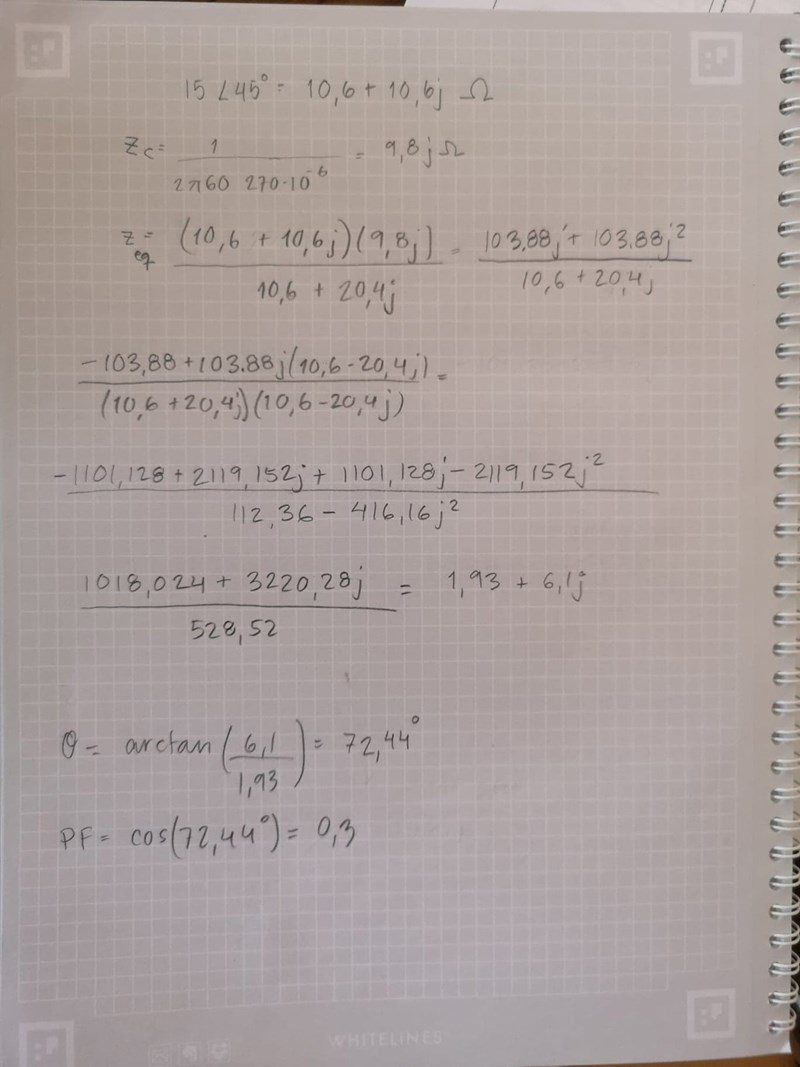 15 ∠45° = 10,6 + 10,6j Ω
Zc = 1 / (2π60 270·10^-6) = 9,8j Ω
Z eq = (10,6 + 10,6j)(9,8j) / (10,6 + 20,4j) = (103,88j + 103.88j²) / (10,6 + 20,4j)
(-103,88 + 103.88j(10,6 - 20,4j)) / ((10,6 + 20,4j)(10,6 - 20,4j)) =
(-1101,128 + 2119,152j + 1101,128j - 2119,152j²) / (112,36 - 416,16j²)
(1018,024 + 3220,28j) / 528,52 = 1,93 + 6,1j
θ = arctan(6,1 / 1,93) = 72,44°
PF = cos(72,44°) = 0,3
WHITELINES